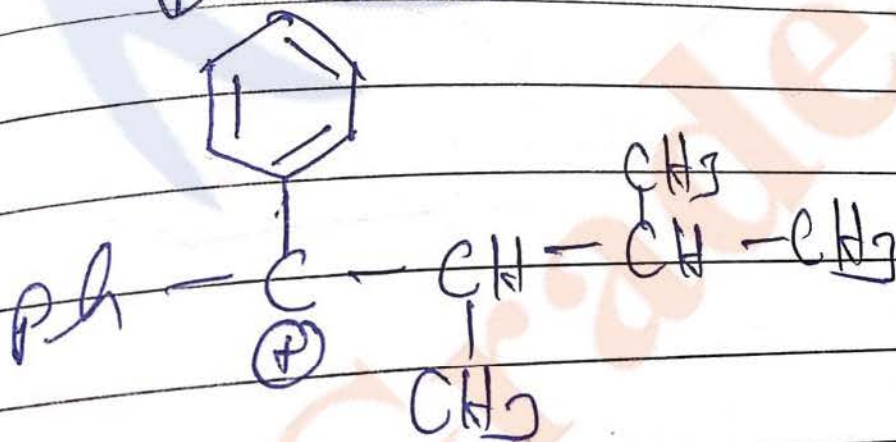 CH3
Ph - C - CH - CH - CH3
⊕
CH3